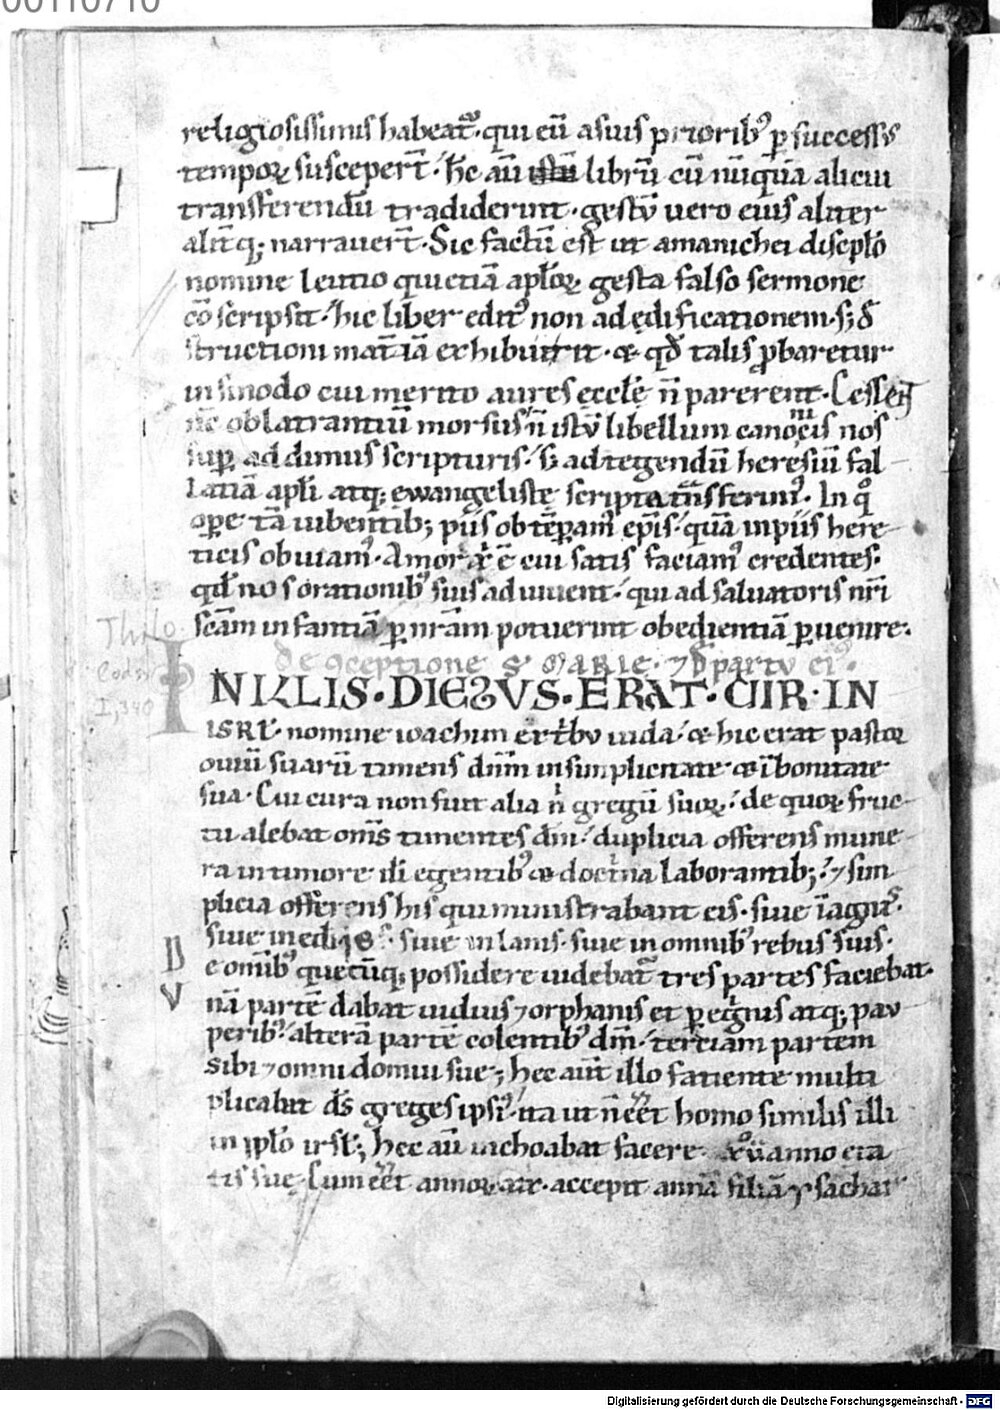 religiosissimis habeat᷑· qui eū a suis priorib᷒ ꝑ successus
tempoꝝ susceper̄t· h̄c aū librū cū nūquā alicui
transferendū tradiderint· gestū vero eius aliter
alit̄q; narraver̄t· Sic factū est ut a manichei discip̄lo
nomine leutio qui etiā ap̄loꝝ gesta falso sermone
cōscripsit· hic liber edit᷒ non ad ędificationem· s;
structioni mat̄iā exhibuerit· & qd̄ talis ꝓbaretur
in sinodo cui merito aures eccl̄e n̄ parerent· Cesset
nc̄ oblatrantiū morsus n̄ istū libellum canonicis nos
suꝑ addimus scripturis· s; ad tegendū heresiū fal
latiā apl̄i atq; ewangelistę scripta t̄nsferim᷒· In qͦ
oꝑe tā iubentib; piis obtēꝑam᷒ ep̄is· quā inpiis here
ticis obviam᷒· Amor ḡ xp̄i ē cui satis faciam᷒ credentes·
qd̄ nos orationib᷒ suis adiuvent· qui ad salvatoris nr̄i
sc̄am infantiā ꝑ nr̄am potuerint obędientiā ꝑvenire·
de cceptione S· MARIE· ⁊ d̄ partu ei᷒·
Thilo
cod.
I, 340
IN ILLIS· DIEBVS· ERAT· VIR· IN
ISRL̄· nomine ioachim ex t̄bu iuda· & hic erat pastor
oviū suarū timens dn̄m in simplicitate & ī bonitate
sua· Cui cura non fuit alia n̄ gregū suoꝝ· de quoꝝ fruc
tu alebat om̄s timentes dm̄· duplicia offerens mune
ra in timore di egentib᷒ & doct̄na laborantib;· ⁊ sim
plicia offerens his qui ministrabant eis· sive ī agnis·
sive in edis· sive in lanis· sive in omnib᷒ rebus suis·
D e omīb᷒ quecūq; possidere videbat᷑ tres partes faciebat·
V nā partē dabat viduis ⁊ orphanis et ꝑegnis atq; pau
perib᷒· alterā partē colentib᷒ dm̄· tertiam partem
sibi ⁊ omni domui sue; hec aūt illo fatiente multi
plicabat ds̄ greges ipsi᷒· ita ut n̄ eēt homo similis illi
in pp̄lo isrl̄; hec aū inchoabat facere xͦv̄ anno eta
tis suę· Cum eēt annoꝝ xx· accepit annā filiā ysachar
Digitalisierung gefördert durch die Deutsche Forschungsgemeinschaft - DFG